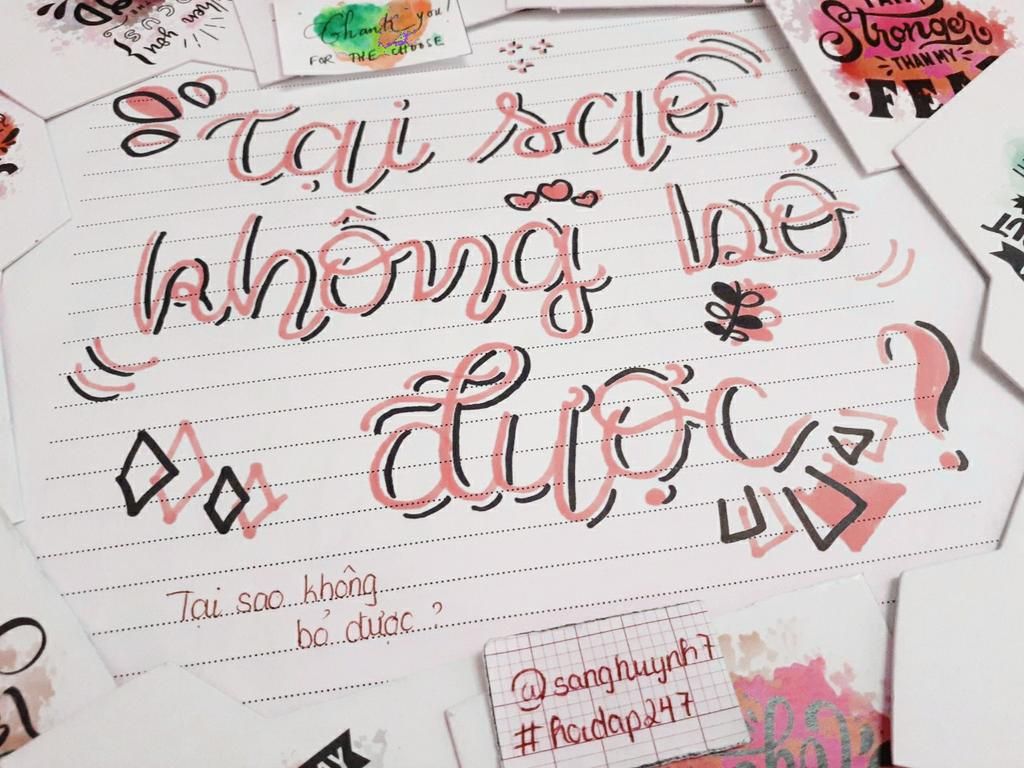 Thank you!
FOR THE CHOOSE
Stronger
THAN MY
Tại sao
không bỏ
được ?
Tại sao không
bỏ được ?
@sanghuynh7
#hoidap247